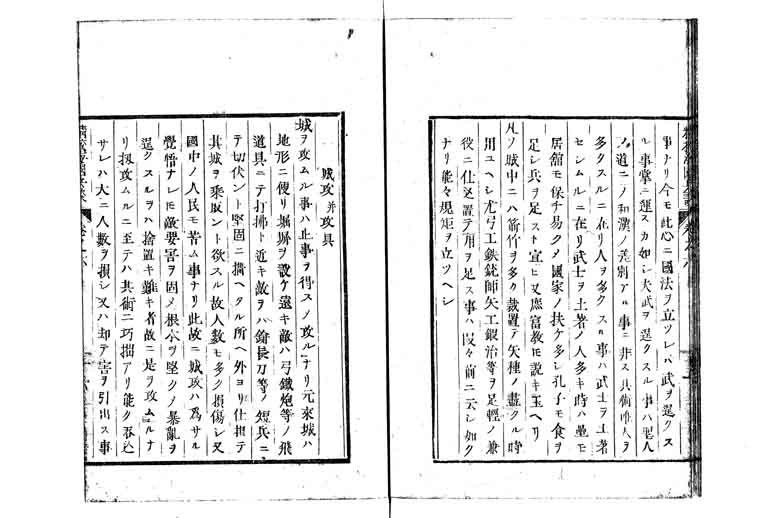 事ナリ今モ此心ニ國法ヲ立ツレハ武ヲ逞クス
ル事掌ニ運スカ如シ夫武ヲ逞クスル事ハ聖人
ノ道ニノ和漢ノ差別アル事ニ非ス其術唯人ヲ
多クスルニ在リ人ヲ多クスル事ハ武士ヲ土著
センムルニ在リ武士ヲ土著ノ人多キ時ハ壘モ
居舘モ保チ易クメ國家ノ扶ケ多シ孔子モ食ヲ
足シ兵ヲ足スト宣ヒ又庶富教モ説キ玉ヘリ
凡ノ城中ニハ箭竹ヲ多ク裁置テ矢種ノ盡クル時
用ユヘシ尤弓工鉄銃師矢工鍜治等ヲ足輕ノ兼
役ニ仕込置テ用ヲ足ス事ハ段々前ニ云シ如ク
ナリ能々規矩ヲ立ツヘシ
城攻并攻具
城ヲ攻ムル事ハ止事ヲ得スノ攻ルナリ元來城ハ
地形ニ便リ堀塀ヲ設ケ遠キ敵ハ弓鐵炮等ノ飛
道具ニテ打拂ト近キ敵ヲハ鎗長刀等ノ短兵ニ
テ切伏ント堅固ニ搆ヘタル所ヘ外ヨリ仕掛テ
其城ヲ乘取ント欲スル故人數モ多ク損傷シ又
國中ノ人民モ苦ム事ナリ此故ニ城攻ハ爲サル
覺悟ナレモ敵要害ヲ固メ根本ヲ堅クノ暴亂ヲ
逞クスルヲハ捨置キ難キ者故ニ是ヲ攻ムルナ
リ扨攻ムルニ至テハ其術ニ巧拙アリ能ク呑込
サレハ大ニ人數ヲ損シ又ハ却テ害ヲ引出ス事